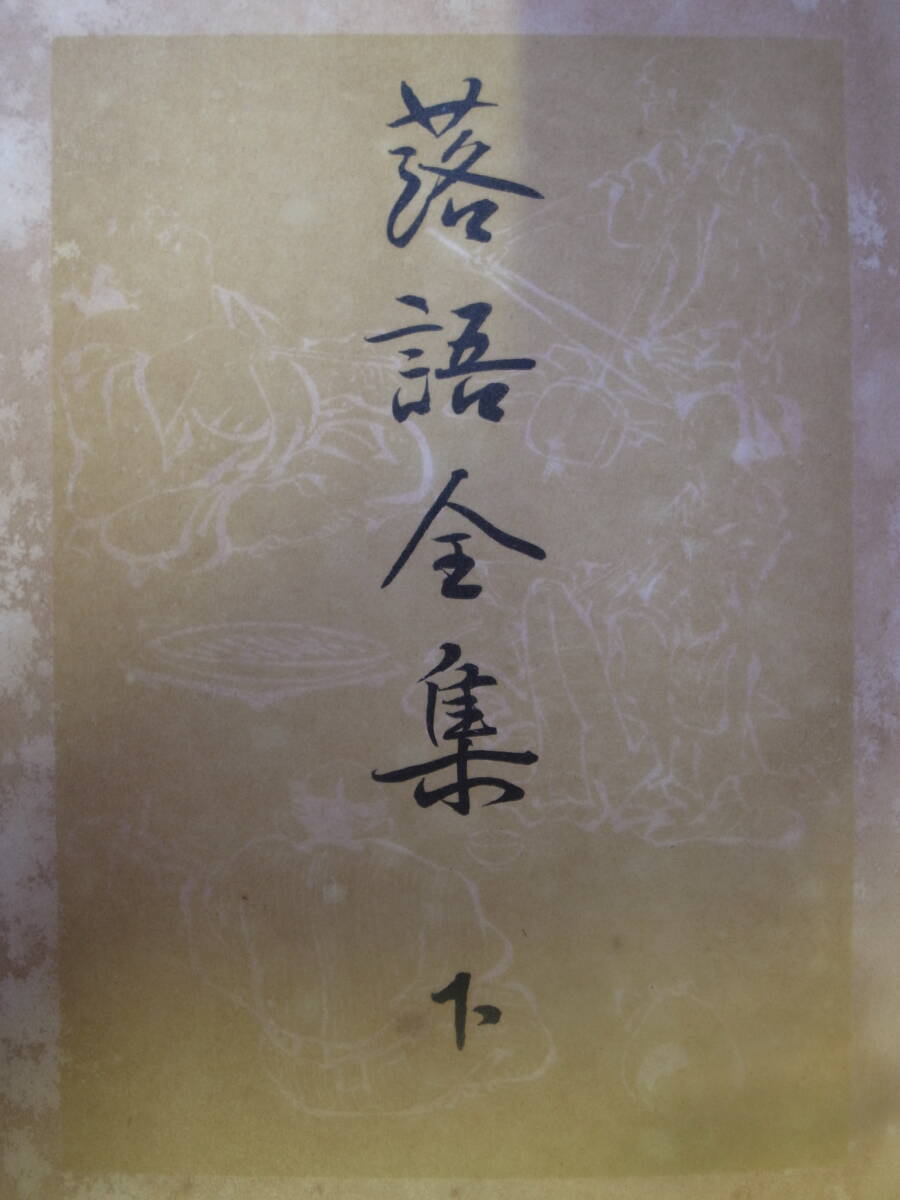 落語全集
下